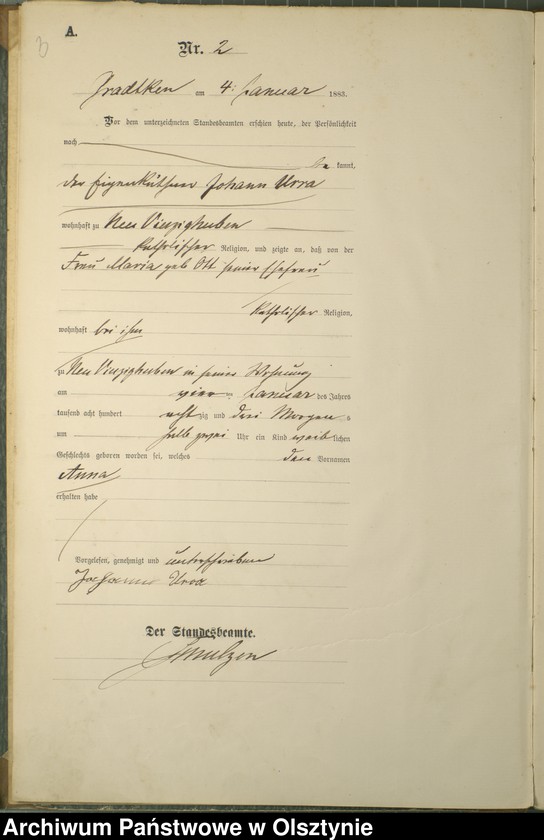 A.
3
Nr. 2
Fradtken am 4. Januar 1883.
Vor dem unterzeichneten Standesbeamten erschien heute, der Persönlichkeit
nach
be kannt,
der Eigenkäthner Johann Urra
wohnhaft zu Neu Vierzighuben
katholischer Religion, und zeigte an, daß von der
Frau Maria geb Ott seiner Ehefrau
katholischer Religion,
wohnhaft bei ihm
zu Neu Vierzighuben in seiner Wohnung
am vier Januar des Jahres
tausend acht hundert acht zig und drei Morgens
um halb zwei Uhr ein Kind weib lichen
Geschlechts geboren worden sei, welches den Vornamen
Anna
erhalten habe
Vorgelesen, genehmigt und unterschrieben
Johann Urra
Der Standesbeamte.
Archiwum Państwowe w Olsztynie